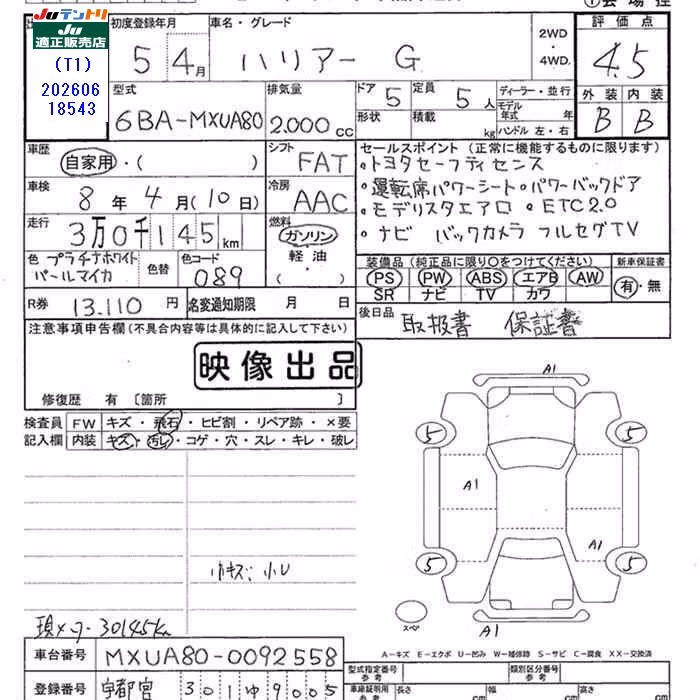 Juテントリ
Ju
適正販売店
(T1)
202606
18543
初度登録年月
5 4月
車名・グレード
ハリアー G
2WD
4WD.
評価点
4.5
外装 内装
B B
型式
6BA-MXUA80
排気量
2.000 CC
ドア 5
定員 5人
形状
積載 kg
ディーラー・並行
モデル年式 年
ハンドル 左・右
車歴
自家用・( )
シフト
FAT
セールスポイント(正常に機能するものに限ります)
・トヨタセーフティセンス
・運転席パワーシート・パワーバックドア
・モデリスタエアロ ・ETC2.0
・ナビ バックカメラ フルセグTV
車検
8年4月(10日)
冷房
AAC
走行
3万0千145km
燃料
ガソリン
軽油
( )
色 プラチナホワイトパールマイカ
色替
色コード
089
装備品(純正品に限り○をつけてください)
PS PW ABS エアB AW
SR ナビ TV カワ
新車保証書
有・無
R券 13.110円
名変通知期限 月 日
後日品
取扱書 保証書
注意事項申告欄(不具合内容等は具体的に記入して下さい)
映像出品
修復歴 有〔箇所 〕
検査員記入欄
FW キズ・飛石・ヒビ割・リペア跡・×要
内装 キズ・汚レ・コゲ・穴・スレ・キレ・破レ
A1
5 5
A1
A1
5 5
スペア
A1
現メーター30145km
A-キズ E-エクボ U-凹み W-補修跡 S-サビ C-腐食 XX-交換済
車台番号 MXUA80-0092558
登録番号 宇都宮 301ゆ9005
型式指定番号 参考
類別区分番号 参考
車庫証明用 参考
長さ cm
幅 cm
高さ cm